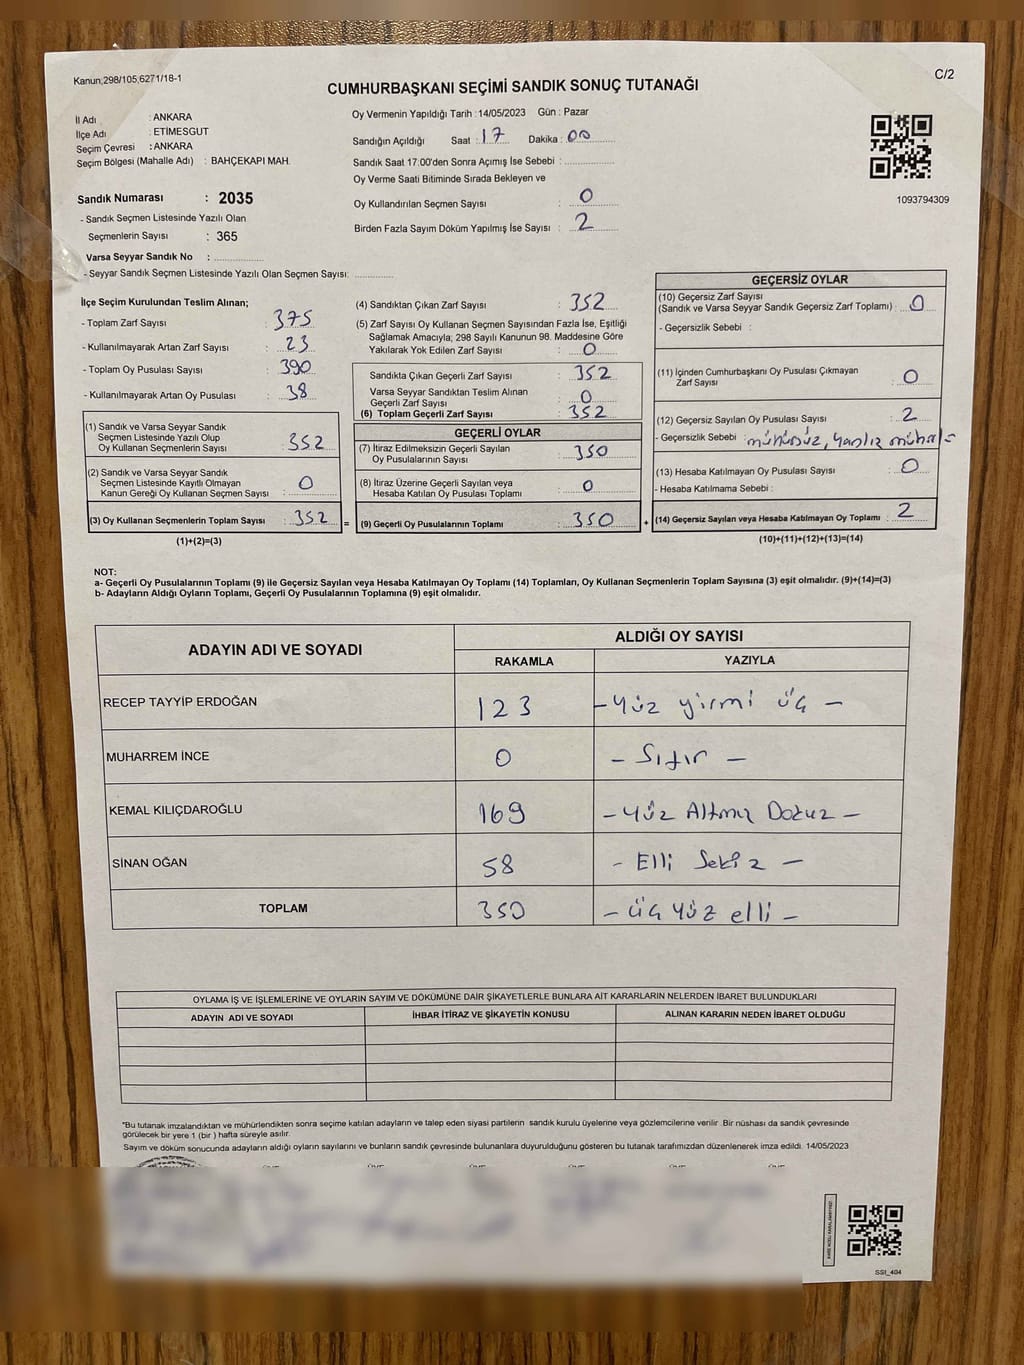 Kanun;298/105;6271/18-1
C/2
CUMHURBAŞKANI SEÇİMİ SANDIK SONUÇ TUTANAĞI
İl Adı : ANKARA
İlçe Adı : ETİMESGUT
Seçim Çevresi : ANKARA
Seçim Bölgesi (Mahalle Adı) : BAHÇEKAPI MAH.
Oy Vermenin Yapıldığı Tarih : 14/05/2023 Gün : Pazar
Sandığın Açıldığı Saat : 17 Dakika : 00
Sandık Saat 17:00'den Sonra Açımış İse Sebebi :
Oy Verme Saati Bitiminde Sırada Bekleyen ve
Oy Kullandırılan Seçmen Sayısı : 0
Birden Fazla Sayım Döküm Yapılmış İse Sayısı : 2
1093794309
Sandık Numarası : 2035
- Sandık Seçmen Listesinde Yazılı Olan
Seçmenlerin Sayısı : 365
Varsa Seyyar Sandık No :
- Seyyar Sandık Seçmen Listesinde Yazılı Olan Seçmen Sayısı:
İlçe Seçim Kurulundan Teslim Alınan;
- Toplam Zarf Sayısı : 375
- Kullanılmayarak Artan Zarf Sayısı : 23
- Toplam Oy Pusulası Sayısı : 390
- Kullanılmayarak Artan Oy Pusulası : 38
(1) Sandık ve Varsa Seyyar Sandık
Seçmen Listesinde Yazılı Olup
Oy Kullanan Seçmenlerin Sayısı : 352
(2) Sandık ve Varsa Seyyar Sandık
Seçmen Listesinde Kayıtlı Olmayan
Kanun Gereği Oy Kullanan Seçmen Sayısı : 0
(3) Oy Kullanan Seçmenlerin Toplam Sayısı : 352 =
(1)+(2)=(3)
(4) Sandıktan Çıkan Zarf Sayısı : 352
(5) Zarf Sayısı Oy Kullanan Seçmen Sayısından Fazla İse, Eşitliği
Sağlamak Amacıyla; 298 Sayılı Kanunun 98. Maddesine Göre
Yakılarak Yok Edilen Zarf Sayısı : 0
Sandıkta Çıkan Geçerli Zarf Sayısı : 352
Varsa Seyyar Sandıktan Teslim Alınan
Geçerli Zarf Sayısı : 0
(6) Toplam Geçerli Zarf Sayısı : 352
GEÇERLİ OYLAR
(7) İtiraz Edilmeksizin Geçerli Sayılan
Oy Pusulalarının Sayısı : 350
(8) İtiraz Üzerine Geçerli Sayılan veya
Hesaba Katılan Oy Pusulası Toplamı : 0
(9) Geçerli Oy Pusulalarının Toplamı : 350 +
GEÇERSİZ OYLAR
(10) Geçersiz Zarf Sayısı
(Sandık ve Varsa Seyyar Sandık Geçersiz Zarf Toplamı) : 0
- Geçersizlik Sebebi :
(11) İçinden Cumhurbaşkanı Oy Pusulası Çıkmayan
Zarf Sayısı : 0
(12) Geçersiz Sayılan Oy Pusulası Sayısı : 2
- Geçersizlik Sebebi : mühürsüz,
(13) Hesaba Katılmayan Oy Pusulası Sayısı : 0
- Hesaba Katılmama Sebebi :
(14) Geçersiz Sayılan veya Hesaba Katılmayan Oy Toplamı : 2
(10)+(11)+(12)+(13)=(14)
NOT:
a- Geçerli Oy Pusulalarının Toplamı (9) ile Geçersiz Sayılan veya Hesaba Katılmayan Oy Toplamı (14) Toplamları, Oy Kullanan Seçmenlerin Toplam Sayısına (3) eşit olmalıdır. (9)+(14)=(3)
b- Adayların Aldığı Oyların Toplamı, Geçerli Oy Pusulalarının Toplamına (9) eşit olmalıdır.
ADAYIN ADI VE SOYADI ALDIĞI OY SAYISI
RAKAMLA YAZIYLA
RECEP TAYYİP ERDOĞAN 123 - Yüz yirmi üç -
MUHARREM İNCE 0 - Sıfır -
KEMAL KILIÇDAROĞLU 169 - Yüz Altmış Dokuz -
SİNAN OĞAN 58 - Elli Sekiz -
TOPLAM 350 - üç yüz elli -
OYLAMA İŞ VE İŞLEMLERİNE VE OYLARIN SAYIM VE DÖKÜMÜNE DAİR ŞİKAYETLERLE BUNLARA AİT KARARLARIN NELERDEN İBARET BULUNDUKLARI
ADAYIN ADI VE SOYADI İHBAR İTİRAZ VE ŞİKAYETİN KONUSU ALINAN KARARIN NEDEN İBARET OLDUĞU
"Bu tutanak imzalandıktan ve mühürlendikten sonra seçime katılan adayların ve talep eden siyasi partilerin sandık kurulu üyelerine veya gözlemcilerine verilir. Bir nüshası da sandık çevresinde
görülecek bir yere 1 (bir ) hafta süreyle asılır.
Sayım ve döküm sonucunda adayların aldığı oyların sayılarını ve bunların sandık çevresinde bulunanlara duyurulduğunu gösteren bu tutanak tarafımızdan düzenlenerek imza edildi. 14/05/2023
SSI_404